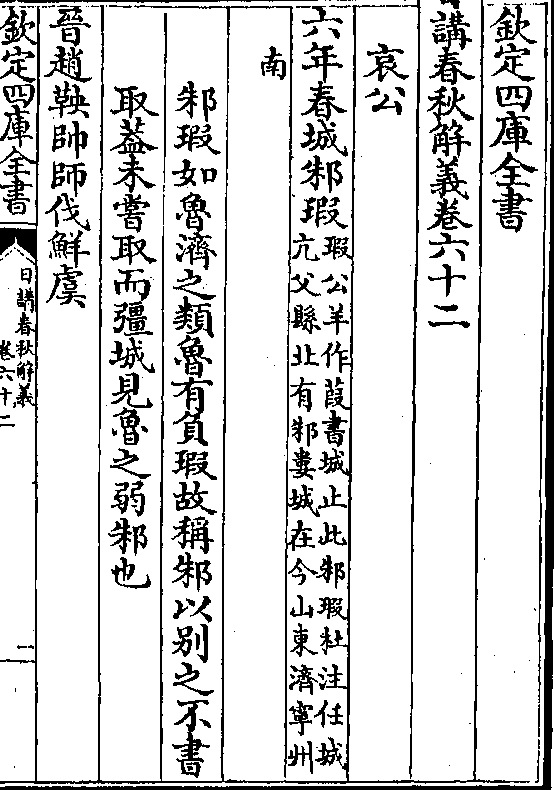 欽定四庫全書
日講春秋解義卷六十二
哀公
六年春城邾瑕瑕公羊作葭書城止此邾瑕杜注任城
亢父縣北有邾婁城在今山東濟寧州
南
邾瑕如魯濟之類魯有負瑕故稱邾以别之不書
取蓋未嘗取而彊城見魯之弱邾也
晉趙鞅帥師伐鮮虞
欽定四庫全書
日講春秋解義
卷六十二
二